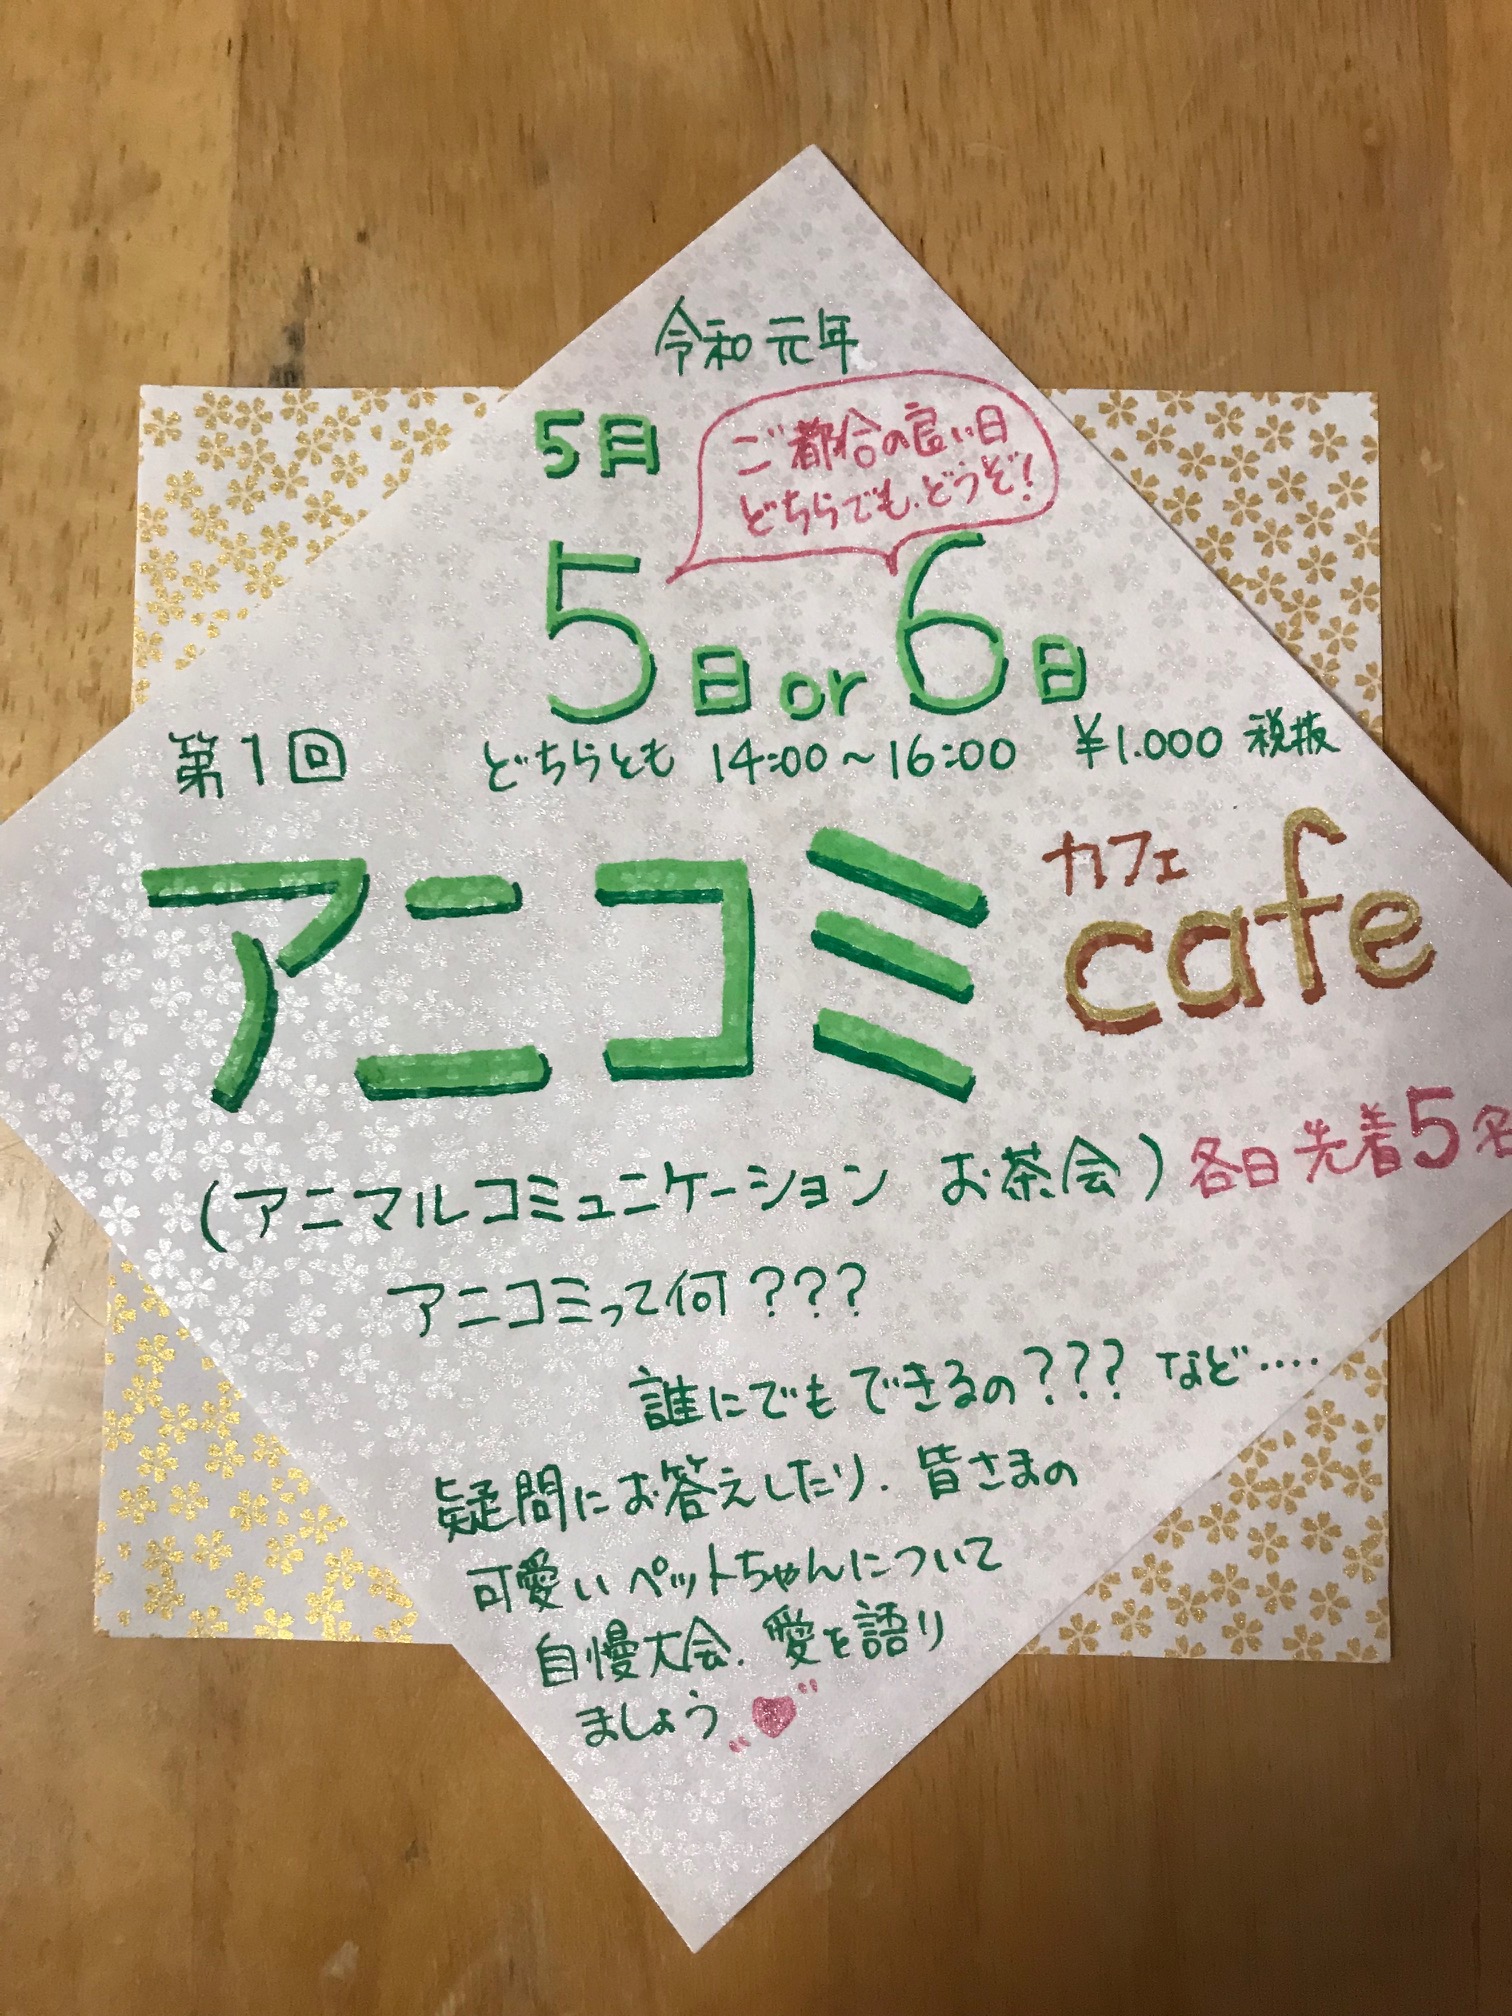 令和元年
5月
ご都合の良い日
どちらでも、どうぞ!
5日or6日
第1回
どちらとも 14:00〜16:00 ¥1.000 税抜
アニコミ
カフェ
cafe
(アニマルコミュニケーション お茶会)
各日先着5名
アニコミって何???
誰にでもできるの??? など‥‥
疑問にお答えしたり、皆さまの
可愛いペットちゃんについて
自慢大会、愛を語り
ましょう